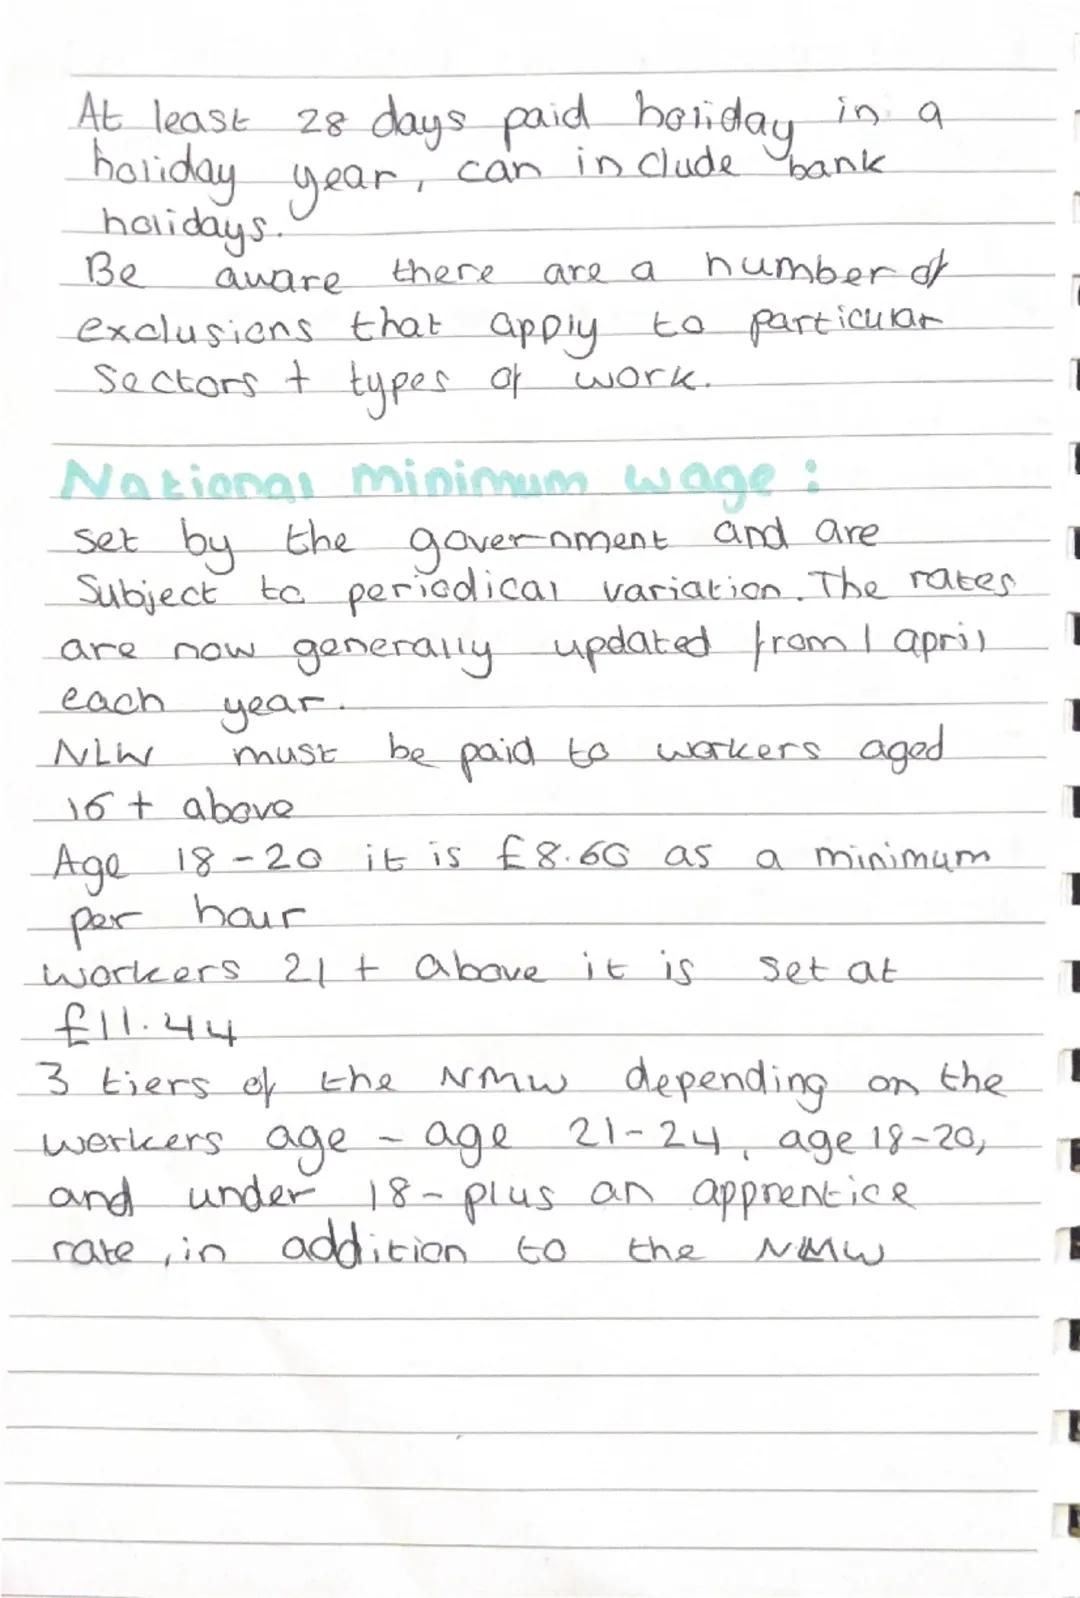 At least 28 days paid holiday in a
holiday year, can include bank
holidays.
Be aware there are a number of
exclusions that apply to particular
Sectors + types of work.
National minimum wage :
set by the government and are
Subject to periodical variation. The rates
are now generally updated from 1 april
each year.
NLW must be paid to workers aged
16 + above
Age 18-20 it is £8.60 as a minimum
per hour
workers 21 + above it is set at
£11.44
3 tiers of the NMW depending on the
workers age - age 21-24, age 18-20,
and under 18 - plus an apprentice
rate, in addition to the NMW